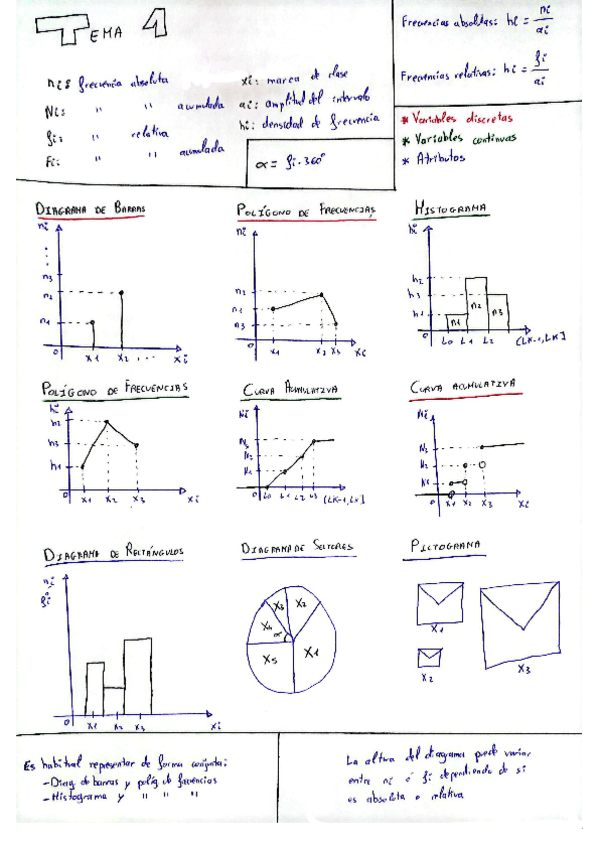 TEMA 1
ni: frecuencia absoluta
Ni: " " acumulada
fi: " relativa
Fi: " " acumulada
xi: marca de clase
ai: amplitud del intervalo
hi: densidad de frecuencia
α = fi·360°
Frecuencias absolutas: hi = ni/ai
Frecuencias relativas: hi = fi/ai
* Variables discretas
* Variables continuas
* Atributos
DIAGRAMA DE BARRAS
ni
n3
n2
n1
0 x1 x2 ... xi
POLÍGONO DE FRECUENCIAS
ni
n2
n1
n3
0 x1 x2 x3 xi
HISTOGRAMA
hi
h2
h3
h1
n1 n2 n3
0 L0 L1 L2 (LK-1, LK]
POLÍGONO DE FRECUENCIAS
hi
h2
h3
h1
0 x1 x2 x3 xi
CURVA ACUMULATIVA
Ni
N3
N2
N1
0 L0 L1 L2 L3 (LK-1, LK]
CURVA ACUMULATIVA
Ni
N3
N2
N1
0 x1 x2 x3 xi
DIAGRAMA DE RECTÁNGULOS
ni
fi
0 x1 x2 x3 xi
DIAGRAMA DE SECTORES
x3 x2
x4 α
x5 x1
PICTOGRAMA
x1
x2
x3
Es habitual representar de forma conjunta:
- Diag. de barras y políg. de frecuencias
- Histograma y " " "
La altura del diagrama puede variar
entre ni ó fi dependiendo de si
es absoluta o relativa